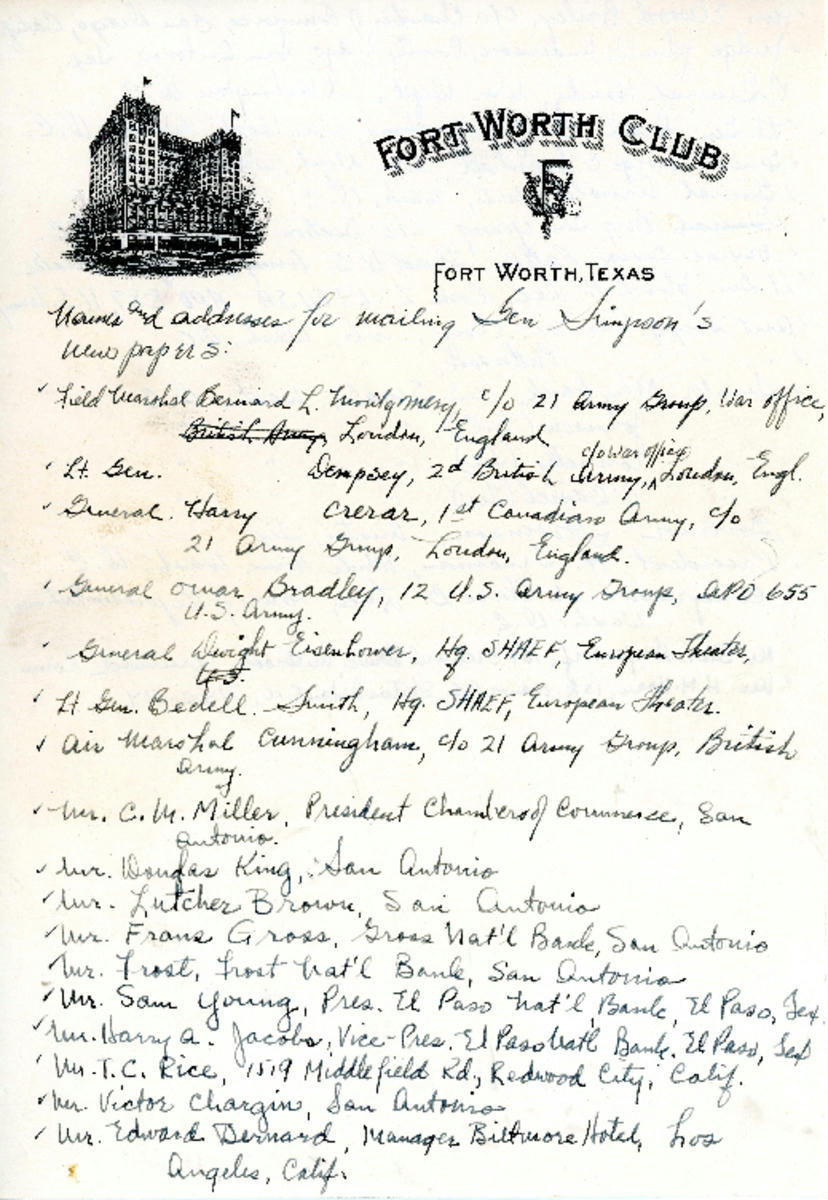 FORT WORTH CLUB
FORT WORTH, TEXAS
Names and addresses for mailing Gen Simpson's
newspapers:
✓ Field Marshal Bernard L. Montgomery, c/o 21 Army Group, War office,
British Army, London, England
c/o War office
✓ Lt. Gen. Dempsey, 2d British Army, London, Engl.
✓ General Harry Crerar, 1st Canadian Army, c/o
21 Army Group, London, England.
✓ General Omar Bradley, 12 U.S. Army Group, APO 655
U.S. Army.
✓ General Dwight Eisenhower, Hq. SHAEF, European Theater,
U.S.
✓ Lt Gen. Bedell Smith, Hq. SHAEF, European Theater.
✓ Air Marshal Cunningham, c/o 21 Army Group, British
Army.
✓ Mr. C. M. Miller, President Chamber of Commerce, San
Antonio.
✓ Mr. Douglas King, San Antonio
✓ Mr. Lutcher Brown, San Antonio
✓ Mr. Frans Gross, Gross Nat'l Bank, San Antonio
✓ Mr. Frost, Frost Nat'l Bank, San Antonio
✓ Mr. Sam Young, Pres. El Paso Nat'l Bank, El Paso, Tex.
✓ Mr. Harry A. Jacobs, Vice-Pres. El Paso Natl Bank. El Paso, Tex
✓ Mr. T. C. Rice, 1519 Middlefield Rd., Redwood City, Calif.
✓ Mr. Victor Chargin, San Antonio
✓ Mr. Edward Bernard, Manager Biltmore Hotel, Los
Angeles, Calif.